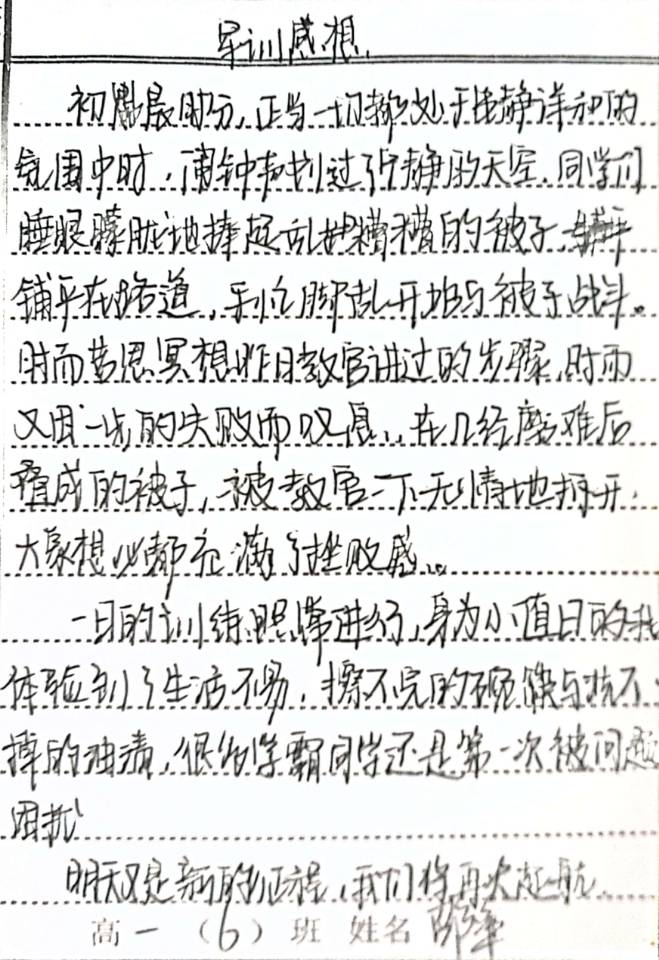 军训感想
初晨时分,正当一切都处于恬静详和的
氛围中时,闹钟声划过了宁静的天空.同学们
睡眼朦胧地捧起乱糟糟的被子
铺平在路道,手忙脚乱开始与被子战斗。
时而苦思冥想昨日教官讲过的步骤,时而
又因一步的失败而叹息,在几经磨难后
叠成的被子,被教官一下无情地掀开.
大家想必都充满了挫败感。
一日的训练照常进行,身为小值日的我
体验到了生活不易,擦不完的碗筷与抗不
掉的油渍,很多学霸同学还是第一次被问题
困扰
明天又是新的征程,我们将再次起航.
高一(6)班 姓名